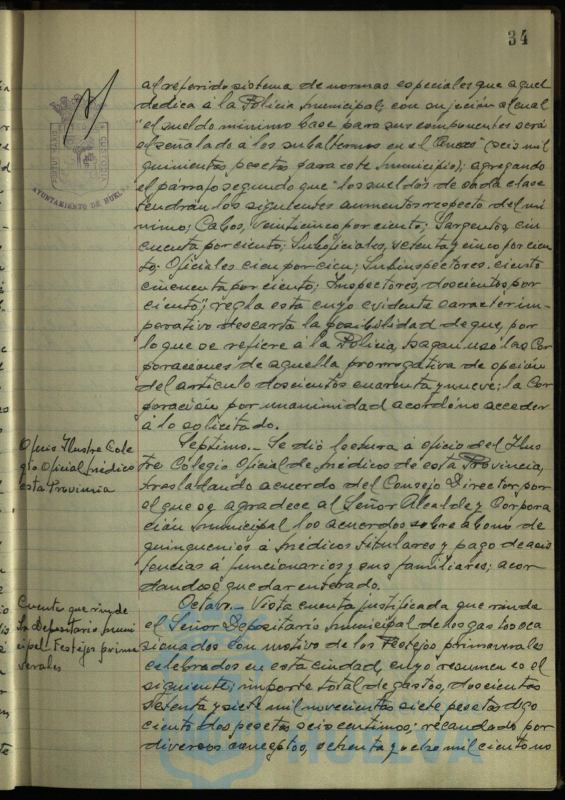 34
AYUNTAMIENTO DE HUELVA
al referido sistema de normas especiales que aquel
dedica á la Policía municipal, con sujeción al cual
"el sueldo mínimo base para sus componentes será
el señalado á los subalternos en el anexo" (seis mil
quinientas pesetas para este municipio); agregando
el párrafo segundo que "los sueldos de cada clase
tendrán los siguientes aumentos respecto del mí
nimo; Cabos, veinticinco por ciento; Sargentos, cin
cuenta por ciento; Suboficiales, setenta y cinco por cien
to. Oficiales cien por cien; Subinspectores. ciento
cincuenta por ciento; Inspectores, doscientos por
ciento"; regla esta cuyo evidente caracter im-
perativo descarta la posibilidad de que, por
lo que se refiere á la Policía, hagan uso las Cor
poraciones de aquella prorrogativa de opción
del artículo doscientos cuarenta y nueve; la Cor
poración por unanimidad acordó no acceder
á lo solicitado.
Oficio Ilustre Cole
gio Oficial médico
esta Provincia
Septimo.- Se dió lectura á oficio del Ilus
tre Colegio Oficial de médicos de esta Provincia,
trasladando acuerdo del Consejo Director, por
el que se agradece al Señor Alcalde y Corpora
ción municipal los acuerdos sobre abono de
quinquenios á médicos titulares y pago de asis
tencias á funcionarios y sus familiares; acor
dandose quedar enterado.
Cuenta que rinde
Sr Depositario muni
cipal- Festejos prima
verales
Octavo.- Vista cuenta justificada que rinde
el Señor Depositario municipal de los gastos oca
sionados con motivo de los Festejos primaverales
celebrados en esta ciudad, cuyo resumen es el
siguiente; importe total de gastos, doscientas
setenta y siete mil novecientas siete pesetas digo
ciento dos pesetas seis centimos; recaudado por
diversos conceptos, ochenta y ocho mil ciento no
HUELVA